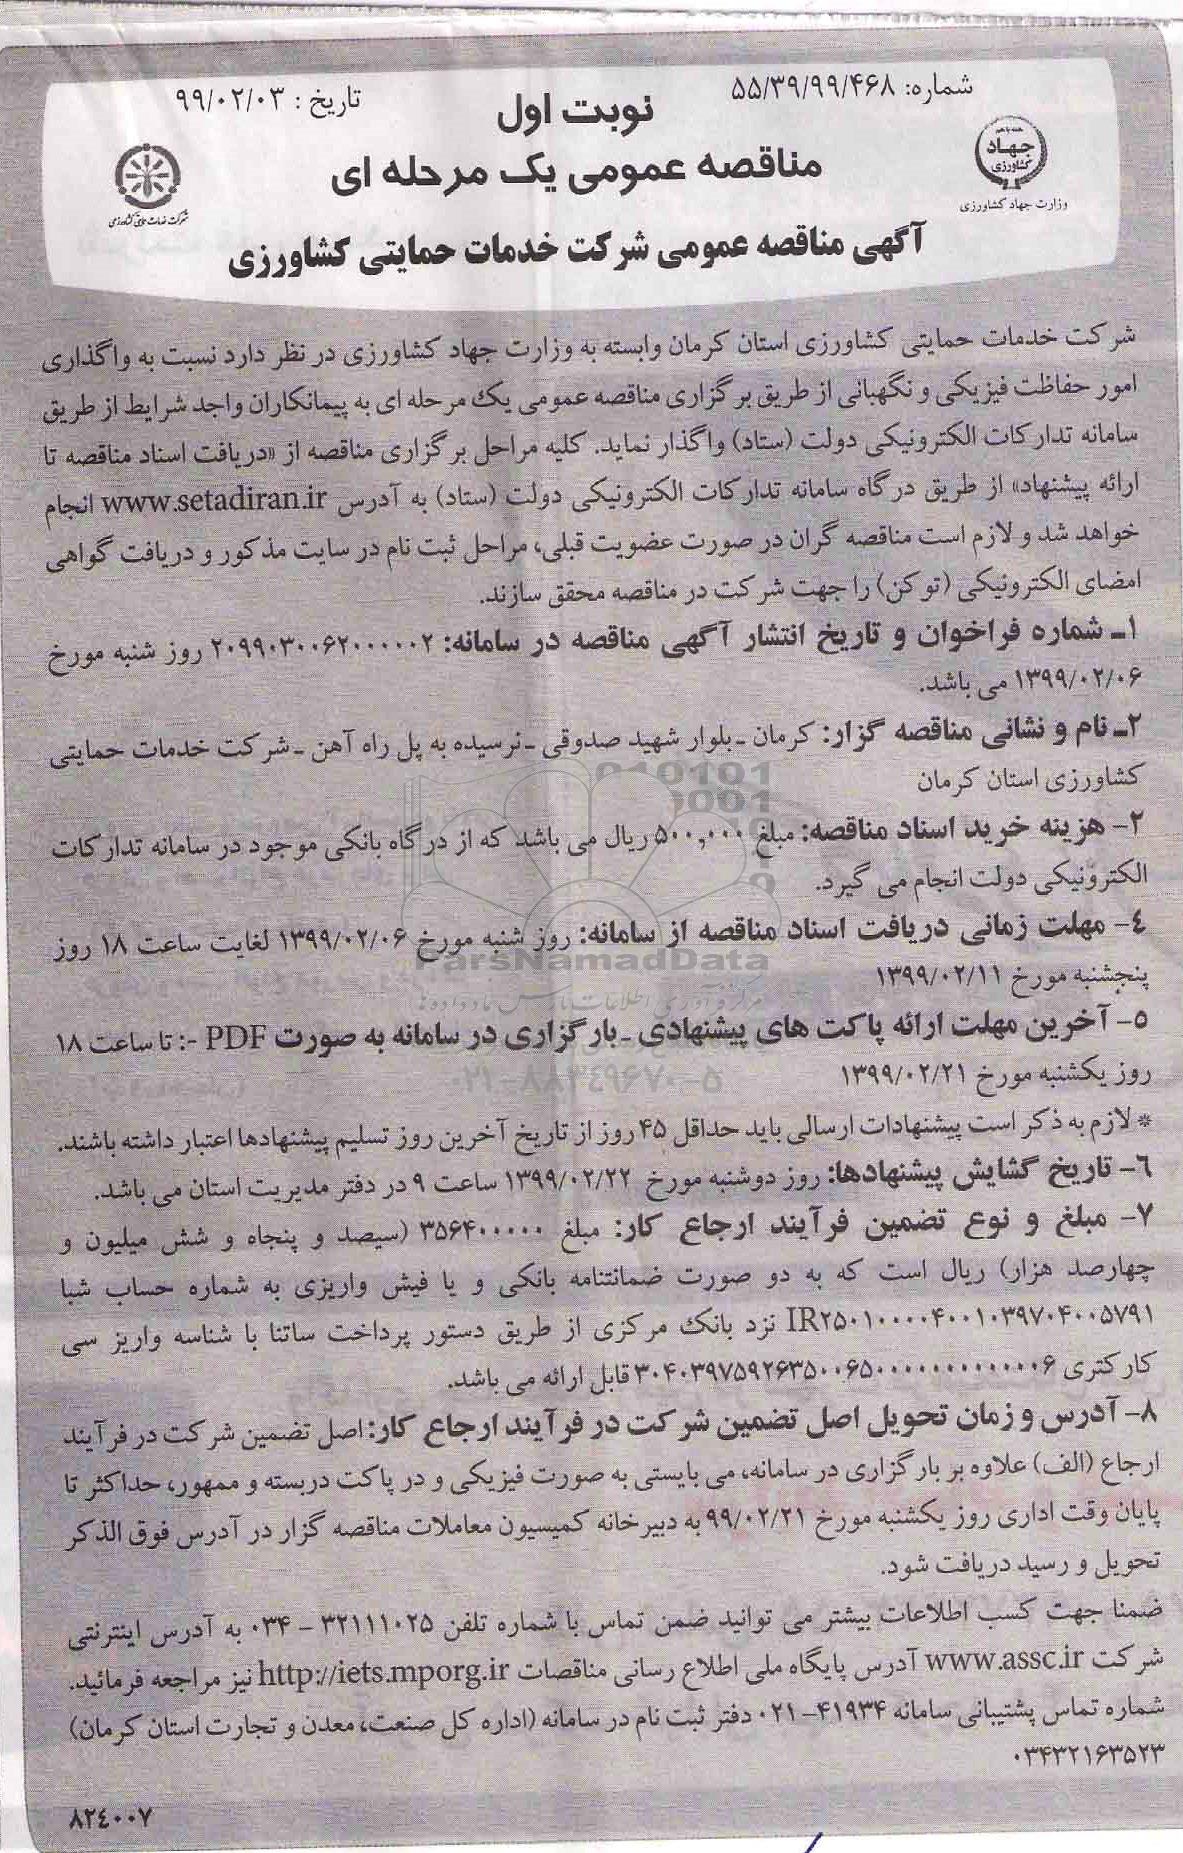 شماره: ۵۵/۳۹/۹۹/۴۶۸
تاریخ : ۹۹/۰۲/۰۳
نوبت اول
مناقصه عمومی یک مرحله ای
جهاد کشاورزی
وزارت جهاد کشاورزی
شرکت خدمات حمایتی کشاورزی
آگهی مناقصه عمومی شرکت خدمات حمایتی کشاورزی
شرکت خدمات حمایتی کشاورزی استان کرمان وابسته به وزارت جهاد کشاورزی در نظر دارد نسبت به واگذاری
امور حفاظت فیزیکی و نگهبانی از طریق برگزاری مناقصه عمومی یک مرحله ای به پیمانکاران واجد شرایط از طریق
سامانه تدارکات الکترونیکی دولت (ستاد) واگذار نماید. کلیه مراحل برگزاری مناقصه از «دریافت اسناد مناقصه تا
ارائه پیشنهاد» از طریق درگاه سامانه تدارکات الکترونیکی دولت (ستاد) به آدرس www.setadiran.ir انجام
خواهد شد و لازم است مناقصه گران در صورت عضویت قبلی، مراحل ثبت نام در سایت مذکور و دریافت گواهی
امضای الکترونیکی (توکن) را جهت شرکت در مناقصه محقق سازند.
۱ـ شماره فراخوان و تاریخ انتشار آگهی مناقصه در سامانه: ۲۰۹۹۰۳۰۰۶۲۰۰۰۰۰۲ روز شنبه مورخ
۱۳۹۹/۰۲/۰۶ می باشد.
۲ـ نام و نشانی مناقصه گزار: کرمان ـ بلوار شهید صدوقی ـ نرسیده به پل راه آهن ـ شرکت خدمات حمایتی
کشاورزی استان کرمان
۲- هزینه خرید اسناد مناقصه: مبلغ ۵۰۰,۰۰۰ ریال می باشد که از درگاه بانکی موجود در سامانه تدارکات
الکترونیکی دولت انجام می گیرد.
٤- مهلت زمانی دریافت اسناد مناقصه از سامانه: روز شنبه مورخ ۱۳۹۹/۰۲/۰۶ لغایت ساعت ۱۸ روز
پنجشنبه مورخ ۱۳۹۹/۰۲/۱۱
ParsNamadData
۵- آخرین مهلت ارائه پاکت های پیشنهادی ـ بارگزاری در سامانه به صورت PDF -: تا ساعت ۱۸
روز یکشنبه مورخ ۱۳۹۹/۰۲/۲۱
۰۲۱-۸۸۳٤۹٦۷۰-۵
* لازم به ذکر است پیشنهادات ارسالی باید حداقل ۴۵ روز از تاریخ آخرین روز تسلیم پیشنهادها اعتبار داشته باشند.
٦- تاریخ گشایش پیشنهادها: روز دوشنبه مورخ ۱۳۹۹/۰۲/۲۲ ساعت ۹ در دفتر مدیریت استان می باشد.
۷- مبلغ و نوع تضمین فرآیند ارجاع کار: مبلغ ۳۵۶۴۰۰۰۰۰ (سیصد و پنجاه و شش میلیون و
چهارصد هزار) ریال است که به دو صورت ضمانتنامه بانکی و یا فیش واریزی به شماره حساب شبا
IR۲۵۰۱۰۰۰۰۴۰۰۱۰۳۹۷۰۴۰۰۵۷۹۱ نزد بانک مرکزی از طریق دستور پرداخت ساتنا با شناسه واریز سی
کارکتری ۳۰۴۰۳۹۷۵۹۲۶۳۵۰۰۶۵۰۰۰۰۰۰۰۰۰۰۰۰۰۶ قابل ارائه می باشد.
۸- آدرس و زمان تحویل اصل تضمین شرکت در فرآیند ارجاع کار: اصل تضمین شرکت در فرآیند
ارجاع (الف) علاوه بر بارگزاری در سامانه، می بایستی به صورت فیزیکی و در پاکت دربسته و ممهور، حداکثر تا
پایان وقت اداری روز یکشنبه مورخ ۹۹/۰۲/۲۱ به دبیرخانه کمیسیون معاملات مناقصه گزار در آدرس فوق الذکر
تحویل و رسید دریافت شود.
ضمنا جهت کسب اطلاعات بیشتر می توانید ضمن تماس با شماره تلفن ۳۲۱۱۱۰۲۵ - ۰۳۴ به آدرس اینترنتی
شرکت www.assc.ir آدرس پایگاه ملی اطلاع رسانی مناقصات http://iets.mporg.ir نیز مراجعه فرمائید.
شماره تماس پشتیبانی سامانه ۴۱۹۳۴-۰۲۱ دفتر ثبت نام در سامانه (اداره کل صنعت، معدن و تجارت استان کرمان)
۰۳۴۳۲۱۶۳۵۲۳
۸۲٤۰۰۷